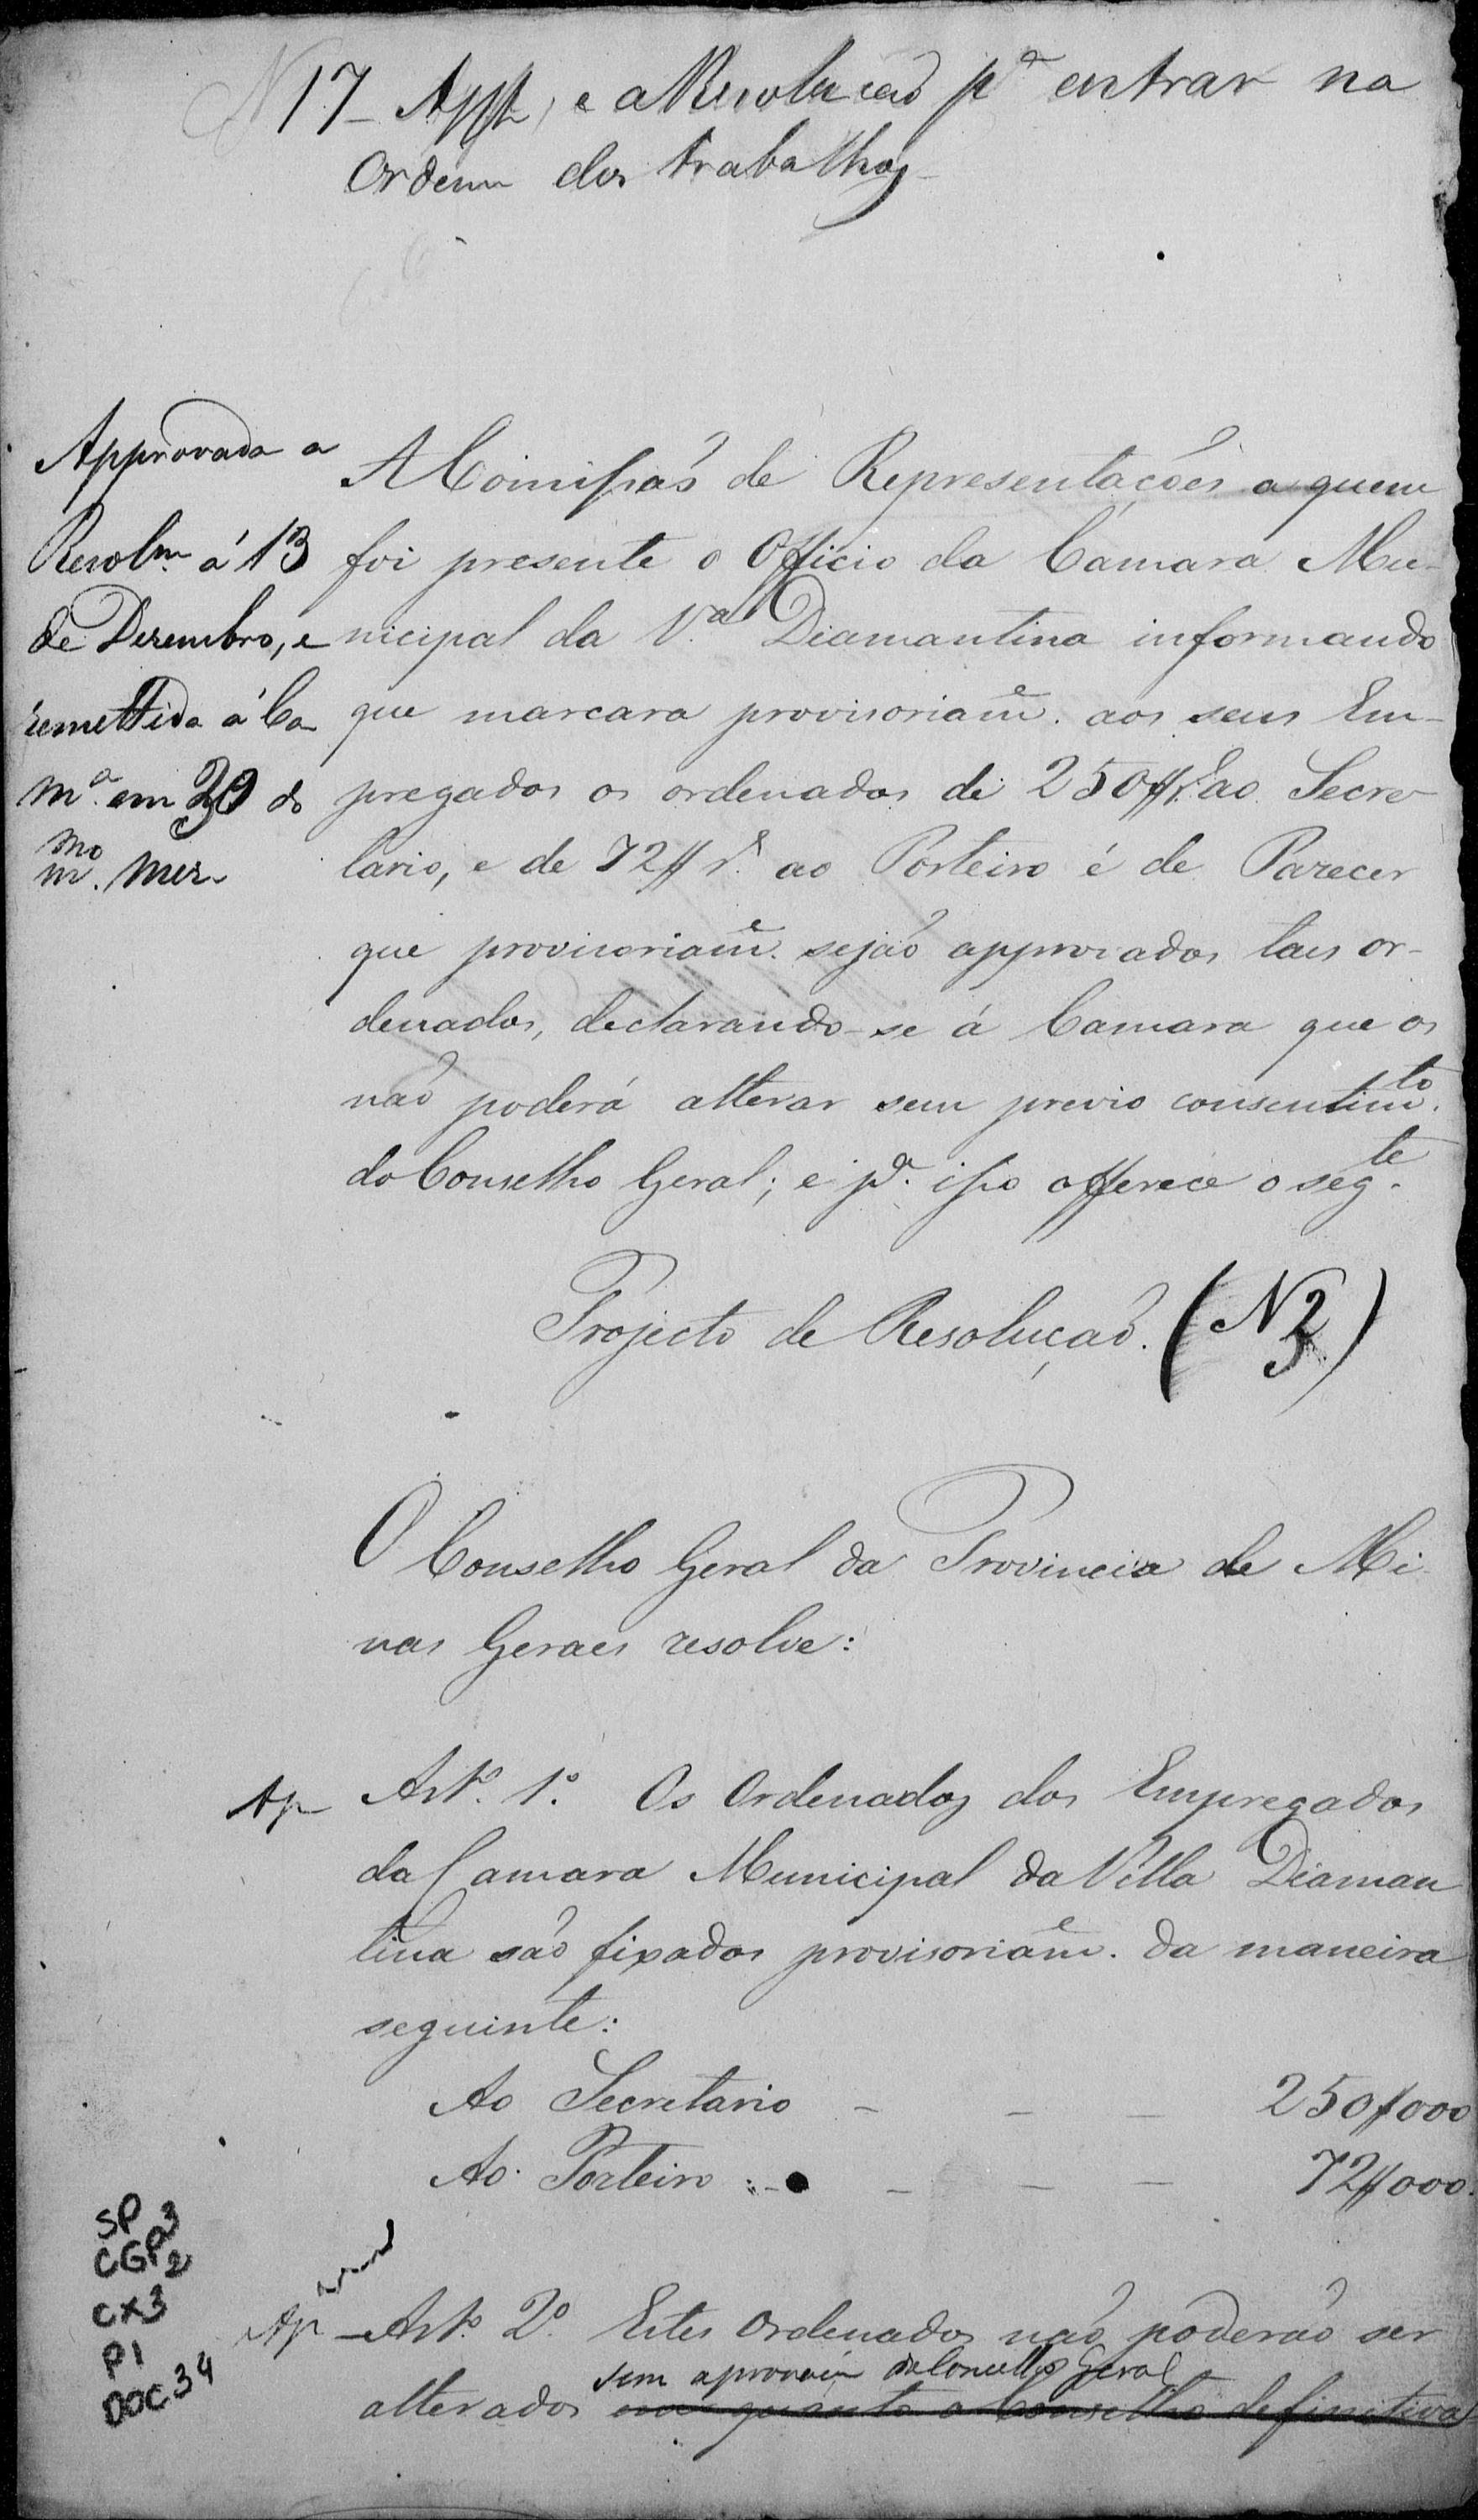 N 17 - App.da, e a Resolução p.a entrar na
Ordem dos trabalhos
Approvada a
Resol.m á 13
de Dezembro, e
remettida á Ca
m.a em 30 do
m.mo mez.
A Comissaõ de Representações a quem
foi presente o Officio da Camara Mu-
nicipal da V.a Diamantina informando
que marcara provisoriam.e aos seus Em-
pregados os ordenados de 250$r.s ao Secre-
tario, e de 72$r.s ao Porteiro é de Parecer
que provisoriam.e sejaõ approvados taes or-
denados, declarando-se á Camara que os
naõ poderá alterar sem previo consentim.to
do Conselho Geral; e p.a isso offerece o seg.te
Projecto de Resoluçaõ. (N 2)
O Conselho Geral da Provincia de Mi-
nas Geraes resolve:
Ap Art.o 1.o Os Ordenados dos Empregados
da Camara Municipal da Villa Diaman
tina saõ fixados provisoriam.e da maneira
seguinte:
Ao Secretario - - - 250$000
Ao Porteiro - - - 72$000
Ap - Art.o 2.o Estes Ordenados naõ poderaõ ser
sem aprovaçam do Conselho Geral
alterados em quanto o Conselho definitiva
SP
CGP2 3
CX3
P1
DOC 34